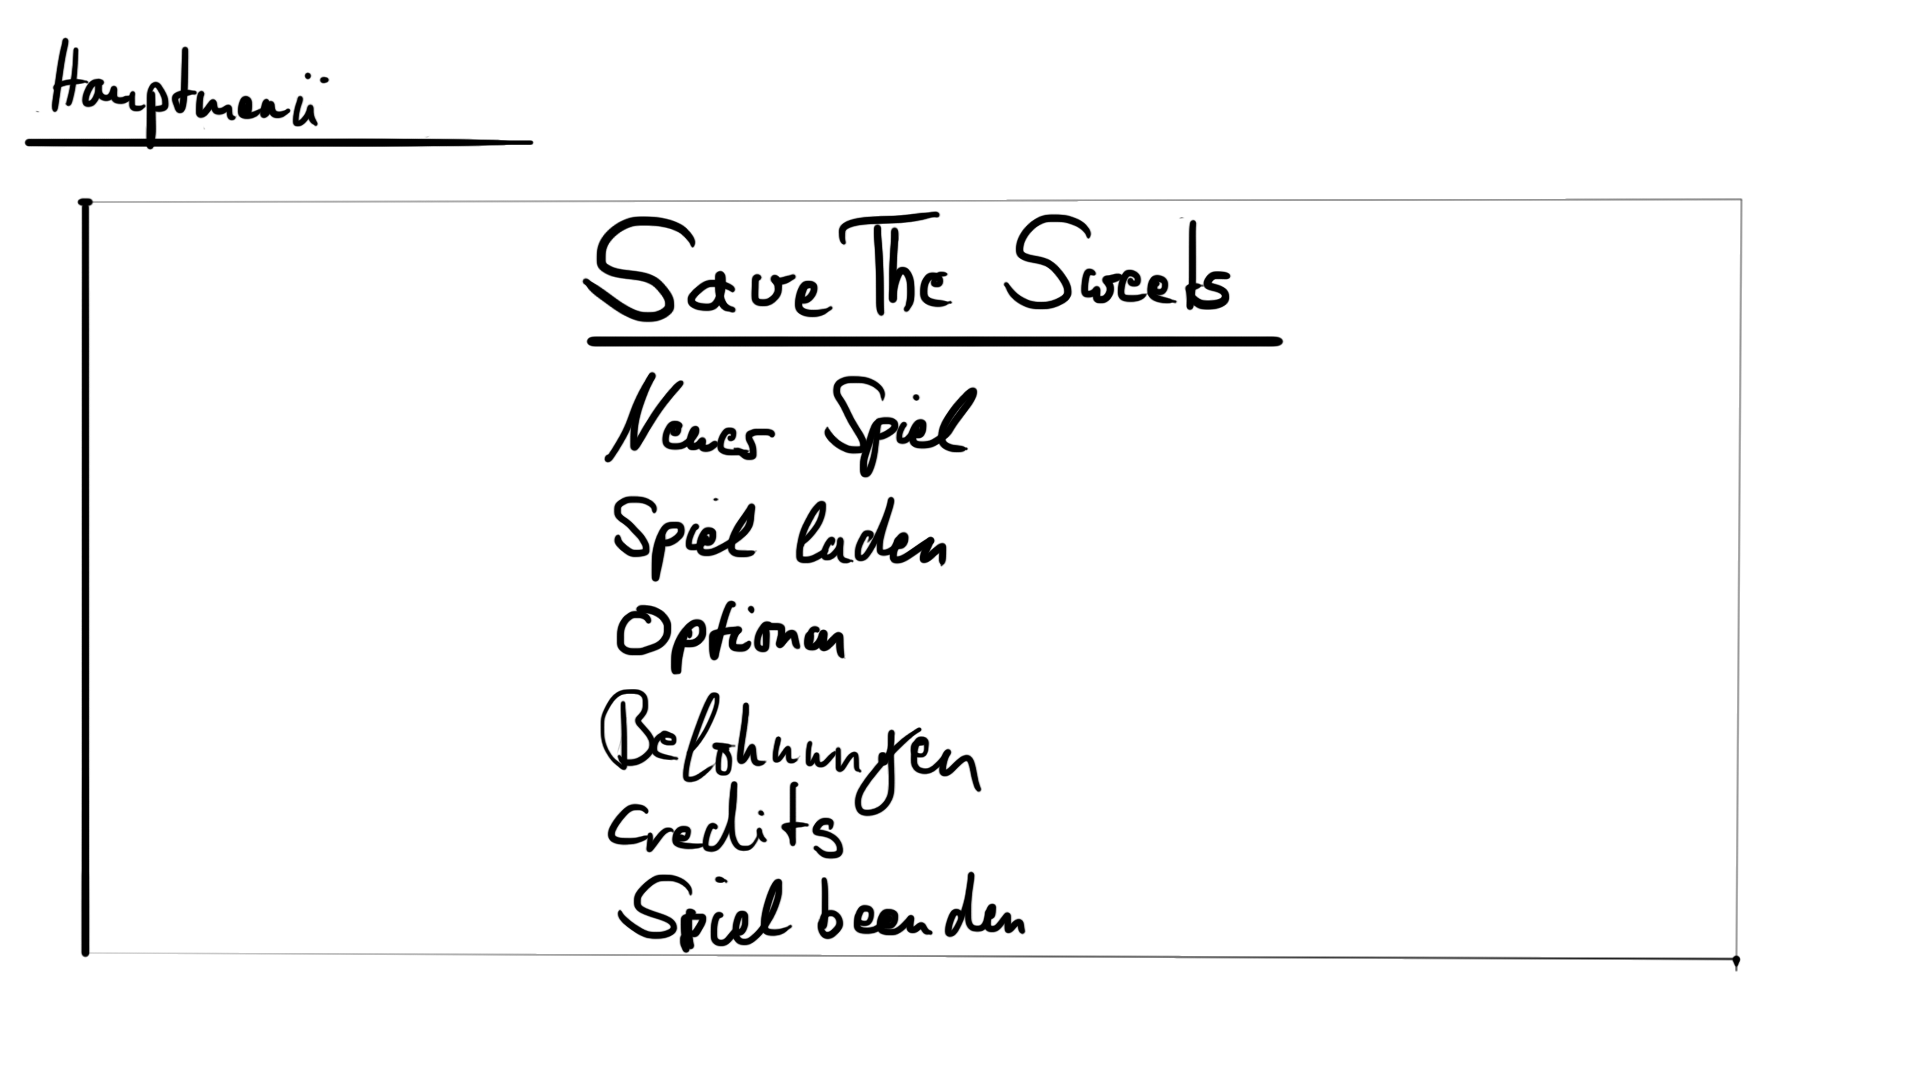 Hauptmenü
Save The Sweets
Neues Spiel
Spiel laden
Optionen
Belohnungen
Credits
Spiel beenden